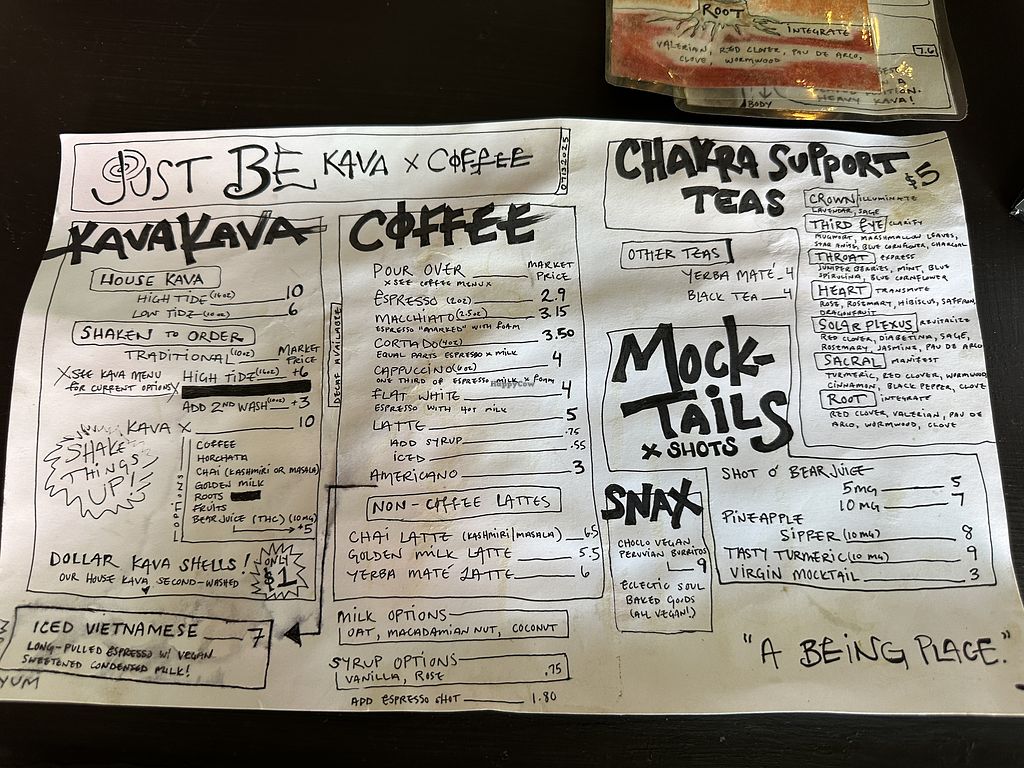 ROOT
INTEGRATE
VALERIAN, RED CLOVER, PAU DE ARCO,
CLOVE, WORMWOOD
7.6
A
EDITION.
HEAVY KAVA!
BODY
JUST BE KAVA X COFFEE
07132025
KAVAKAVA
HOUSE KAVA
HIGH TIDE (16oz) 10
LOW TIDE (10oz) 6
SHAKEN TO ORDER
TRADITIONAL (10oz) MARKET PRICE
X SEE KAVA MENU FOR CURRENT OPTIONS X
HIGH TIDE (16oz) +6
ADD 2ND WASH (10oz) +3
KAVA X 10
SHAKE THINGS UP!
OPTIONS
COFFEE
HORCHATA
CHAI (KASHMIRI OR MASALA)
GOLDEN MILK
ROOTS
FRUITS
BEAR JUICE (THC) (10MG)
+5
DOLLAR KAVA SHELLS!
OUR HOUSE KAVA SECOND-WASHED
ONLY $1
ICED VIETNAMESE 7
LONG-PULLED ESPRESSO W/ VEGAN
SWEETENED CONDENSED MILK!
YUM
COFFEE
DECAF AVAILABLE
POUR OVER MARKET PRICE
X SEE COFFEE MENU X
ESPRESSO (2oz) 2.9
MACCHIATO (2.5oz) 3.15
ESPRESSO "MARKED" WITH FOAM
CORTADO (4oz) 3.50
EQUAL PARTS ESPRESSO X MILK
CAPPUCCINO (6oz) 4
ONE THIRD OF ESPRESSO X MILK X FOAM
HappyCow
FLAT WHITE 4
ESPRESSO WITH HOT MILK
LATTE 5
ADD SYRUP .75
ICED .55
AMERICANO 3
NON-COFFEE LATTES
CHAI LATTE (KASHMIRI|MASALA) 6.5
GOLDEN MILK LATTE 5.5
YERBA MATÉ LATTE 6
MILK OPTIONS
OAT, MACADAMIAN NUT, COCONUT
SYRUP OPTIONS
VANILLA, ROSE .75
ADD ESPRESSO SHOT 1.80
CHAKRA SUPPORT TEAS $5
CROWN ILLUMINATE
LAVENDAR, SAGE
THIRD EYE CLARIFY
MUGWORT, MARSHMALLOW LEAVES,
STAR ANISE, BLUE CORNFLOWER, CHARCOAL
THROAT EXPRESS
JUNIPER BERRIES, MINT, BLUE
SPIRULINA, BLUE CORNFLOWER
HEART TRANSMUTE
ROSE, ROSEMARY, HIBISCUS, SAFFRON,
DRAGONFRUIT
SOLAR PLEXUS REVITALIZE
RED CLOVER, DIABETINA, SAGE,
ROSEMARY, JASMINE, PAU DE ARCO
SACRAL MANIFEST
TURMERIC, RED CLOVER, WORMWOOD
CINNAMON, BLACK PEPPER, CLOVE
ROOT INTEGRATE
RED CLOVER, VALERIAN, PAU DE
ARCO, WORMWOOD, CLOVE
OTHER TEAS
YERBA MATÉ 4
BLACK TEA 4
MOCK-
TAILS
X SHOTS
SHOT O' BEAR JUICE
5MG 5
10 MG 7
PINEAPPLE
SIPPER (10 MG) 8
TASTY TURMERIC (10 MG) 9
VIRGIN MOCKTAIL 3
SNAX
CHOCLO VEGAN
PERUVIAN BURRITOS
9
ECLECTIC SOUL
BAKED GOODS
(ALL VEGAN!)
"A BEING PLACE."